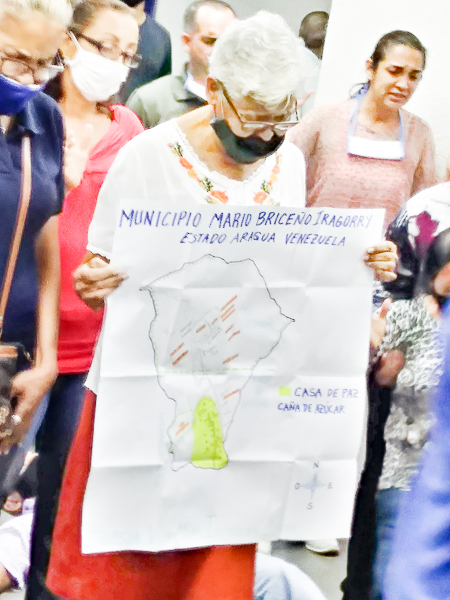 MUNICIPIO MARIO BRICEÑO IRAGORRY
ESTADO ARAGUA VENEZUELA
CASA DE PAZ
CAÑA DE AZÚCAR
N
O E
S